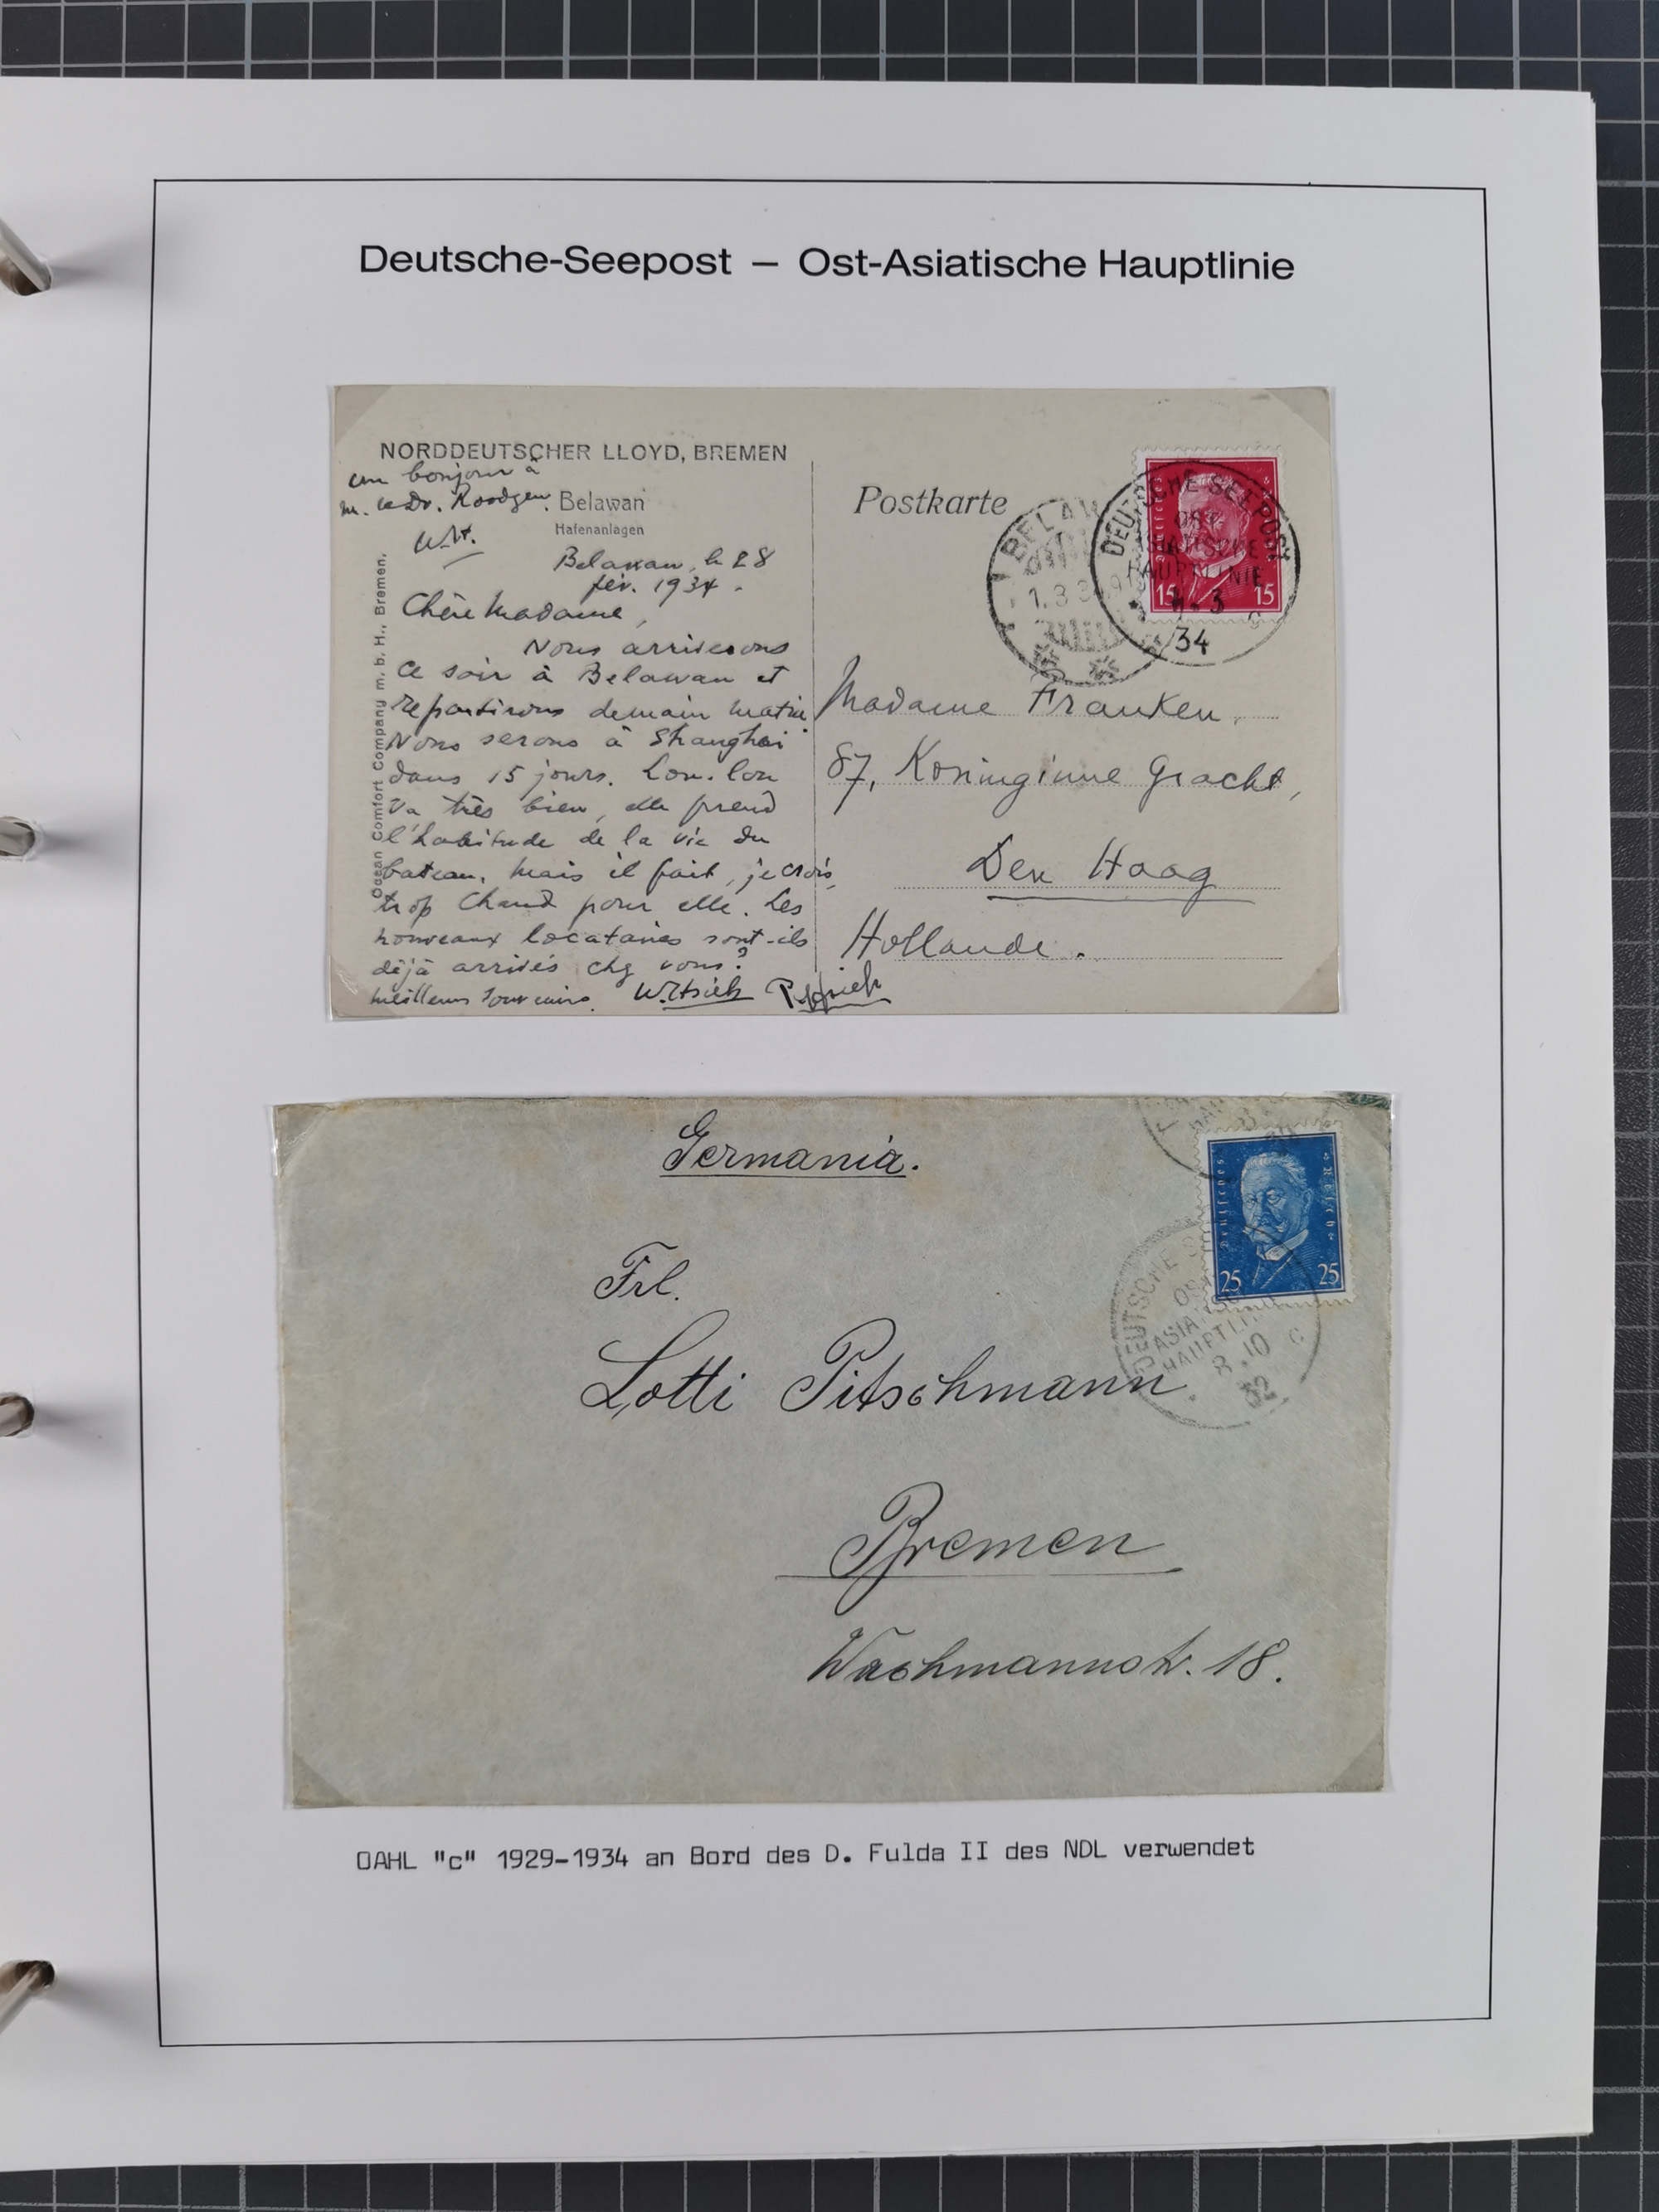 Deutsche-Seepost – Ost-Asiatische Hauptlinie
NORDDEUTSCHER LLOYD, BREMEN
un bonjour à
Belawan
Hafenanlagen
Belawan, le 28
fév. 1934.
Chère Madame,
Nous arriverons
ce soir à Belawan et
repartirons demain matin.
Nous serons à Shanghai
dans 15 jours. Lou-lou
va très bien, elle prend
l'habitude de la vie du
bateau, mais il fait, je crois,
trop chaud pour elle. Les
nouveaux locataires sont-ils
déjà arrivés chez vous?
meilleurs souvenirs.
Ocean Comfort Company m. b. H., Bremen.
Postkarte
BELAW
1.3.3
DEUTSCHE SEEPOST
OST-
ASIATISCHE
HAUPTLINIE
4.3
34
c
Deutsches Reich
15 15
Madame Franken.
87, Koninginne Gracht,
Den Haag
Hollande.
Germania.
Deutsches Reich
25 25
DEUTSCHE S
OS
ASIATISC
HAUPTLIN
8.10
32
c
Frl.
Lotti Pitschmann
Bremen
Wachmannstr. 18.
OAHL "c" 1929-1934 an Bord des D. Fulda II des NDL verwendet